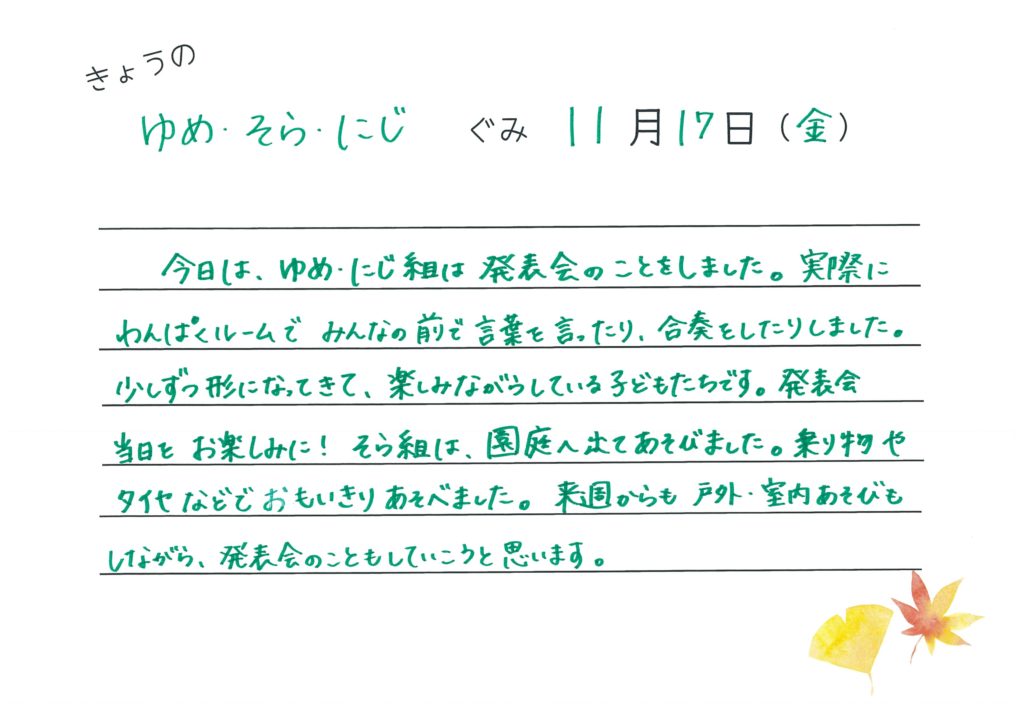 きょうの
ゆめ・そら・にじ ぐみ 11月17日(金)
今日は、ゆめ・にじ組は発表会のことをしました。実際に
わんぱくルームで みんなの前で言葉を言ったり、合奏をしたりしました。
少しずつ形になってきて、楽しみながらしている子どもたちです。発表会
当日を お楽しみに! そら組は、園庭へ出てあそびました。乗り物や
タイヤなどでおもいきりあそべました。来週からも 戸外・室内あそびも
しながら、発表会のこともしていこうと思います。